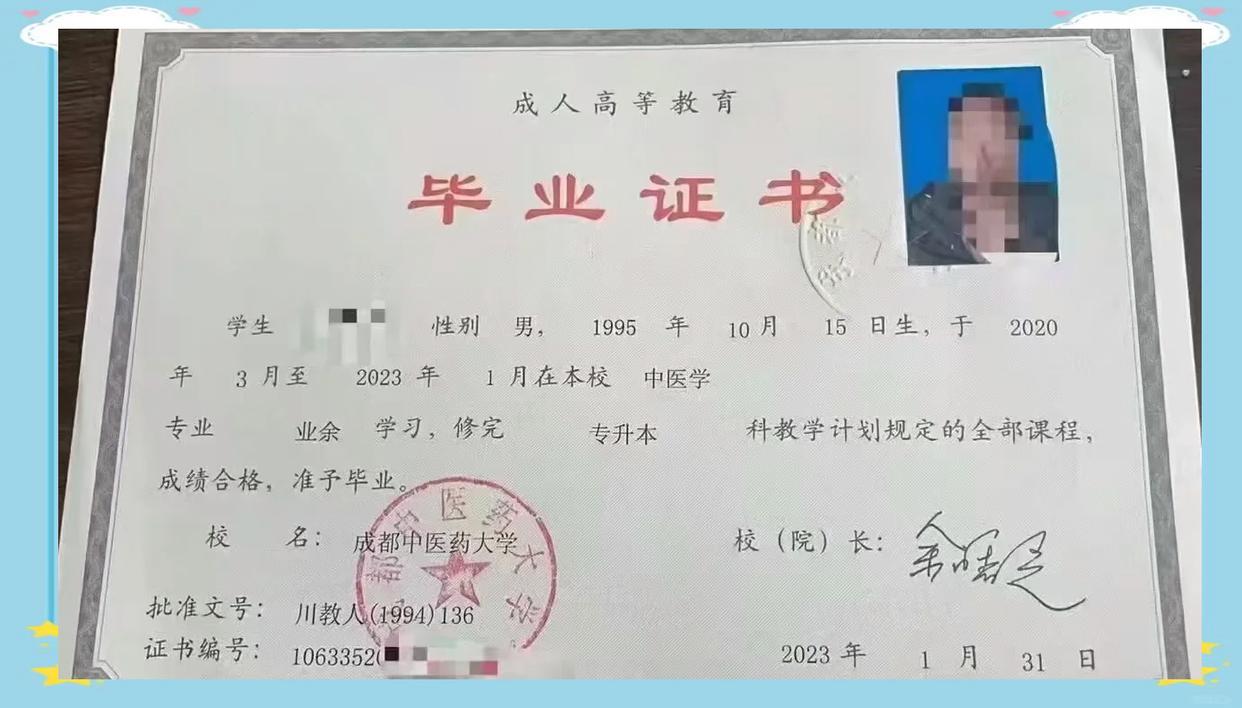 成人高等教育
毕业证书
学生 性别 男， 1995 年 10 月 15 日生，于 2020
年 3 月至 2023 年 1 月在本校 中医学
专业 业余 学习，修完 专升本 科教学计划规定的全部课程，
成绩合格，准予毕业。
校 名： 成都中医药大学
校（院）长：
批准文号： 川教人(1994)136
证书编号： 1063352
2023 年 1 月 31 日
都中医药大学